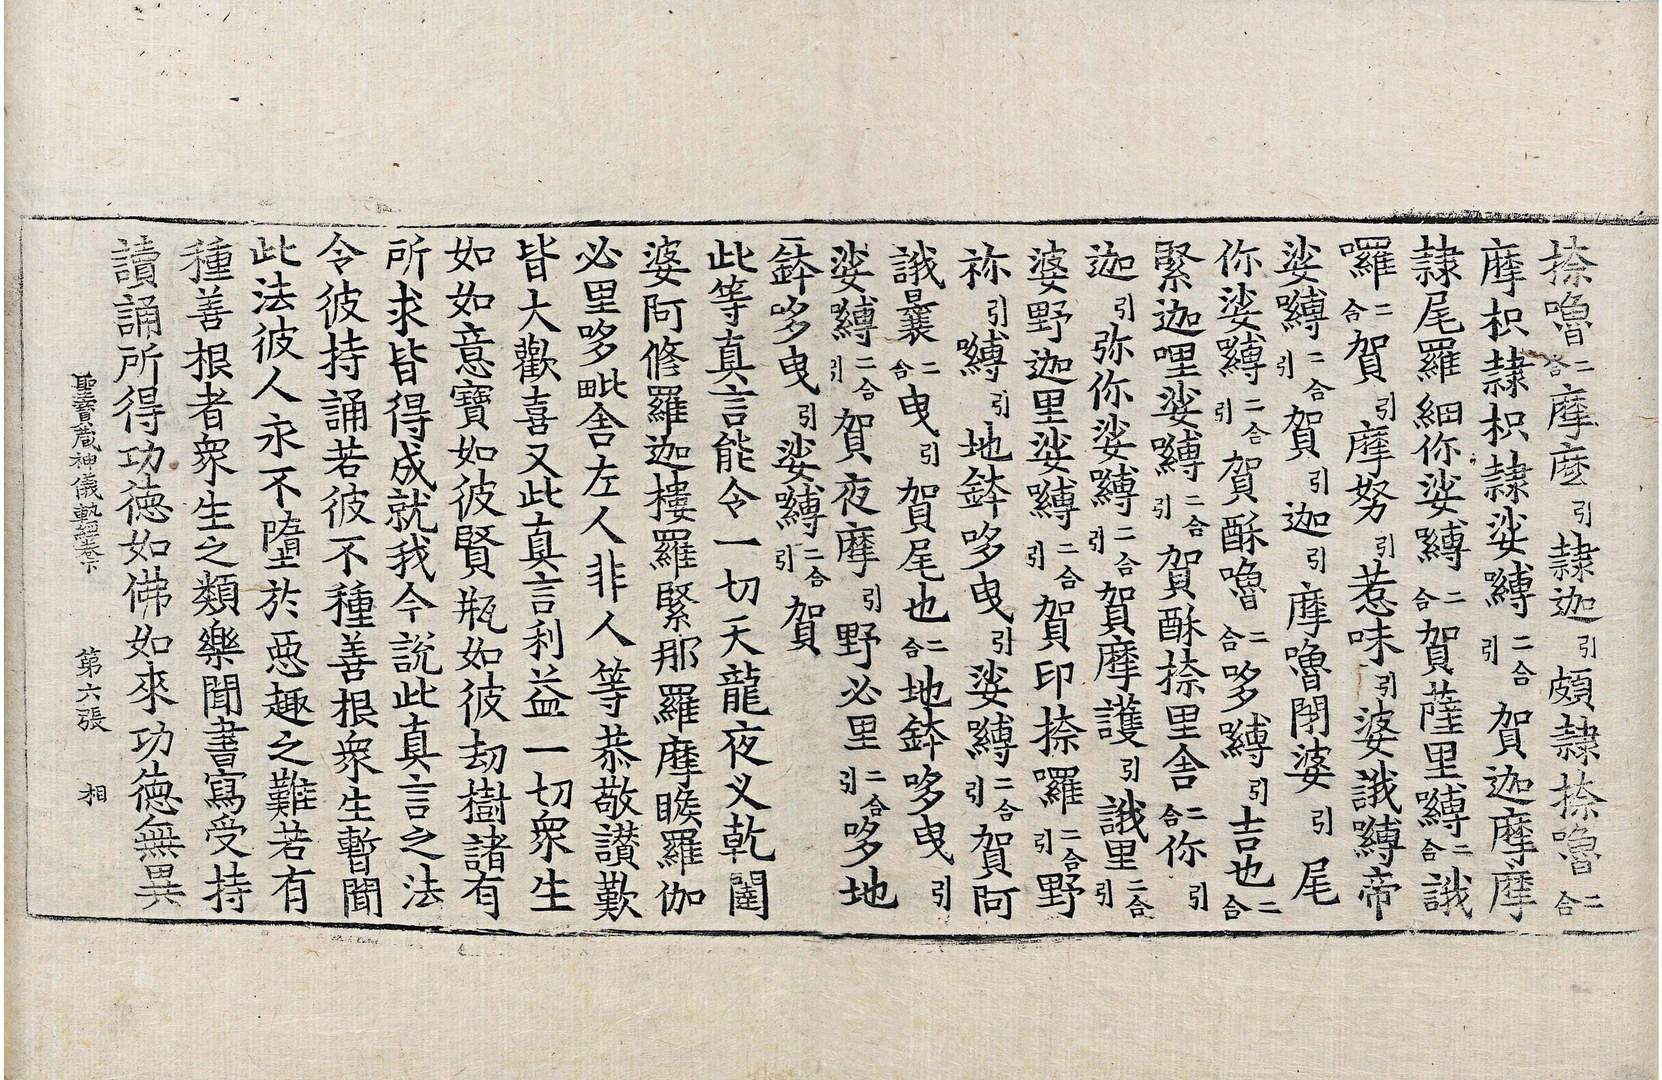 捺嚕二合摩麼引隷迦引頗隷捺嚕二合
摩枳隷枳隷娑嚩二合引賀迦摩摩
隷尾羅細你娑嚩二合賀薩里嚩二合誐
囉二合賀引摩努引惹味引婆誐嚩帝
娑嚩二合引賀引迦引摩嚕閉婆引尾
你娑嚩二合引賀酥嚕二合哆嚩引吉也二合
緊迦哩娑嚩二合引賀酥捺里舍二合你引
迦引弥你娑嚩二合引賀摩護引誐里二合引
婆野迦里娑嚩二合引賀印捺囉二合引野
祢引嚩引地鉢哆曳引娑嚩二合引賀阿
誐曩二合曳引賀尾也二合地鉢哆曳引
娑嚩二合引賀夜摩引野必里二合引哆地
鉢哆曳引娑嚩二合引賀一
此等真言能令一切天龍夜叉乾闥
婆阿修羅迦樓羅緊那羅摩睺羅伽
必里哆毗舍左人非人等恭敬讃歎
皆大歡喜又此真言利益一切衆生
如如意寶如彼賢瓶如彼劫樹諸有
所求皆得成就我今說此真言之法
令彼持誦若彼不種善根衆生暫聞
此法彼人永不墮於惡趣之難若有
種善根者衆生之類樂聞書寫受持
讀誦所得功德如佛如來功德無異
聖寶藏神儀軌經卷下　第六張　相